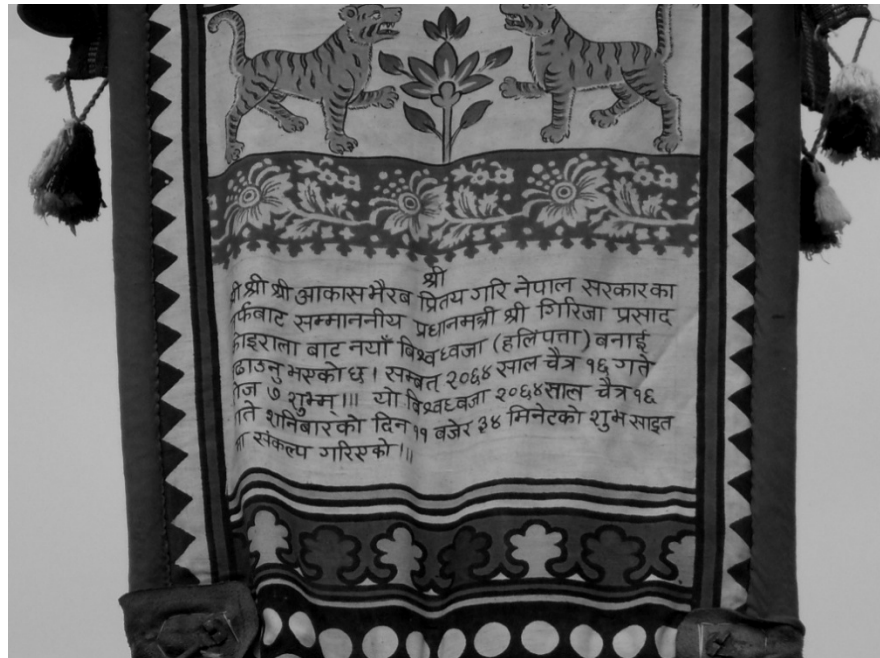 श्री
श्री श्री आकास भैरब प्रितय गरि नेपाल सरकारका
सम्माननीय प्रधानमन्त्री श्री गिरिजा प्रसाद
बाट नयाँ बिश्वध्वजा (हलिंपत्ता) बनाई
सम्बत् २०६४ साल चैत्र १६ गते
७ शुम्म् ।।। यो बिश्वध्वजा २०६४ साल चैत्र १६
शनिबारको दिन ११ बजेर ३४ मिनेटको शुभ साइत
संकल्प गरिएको ।॥